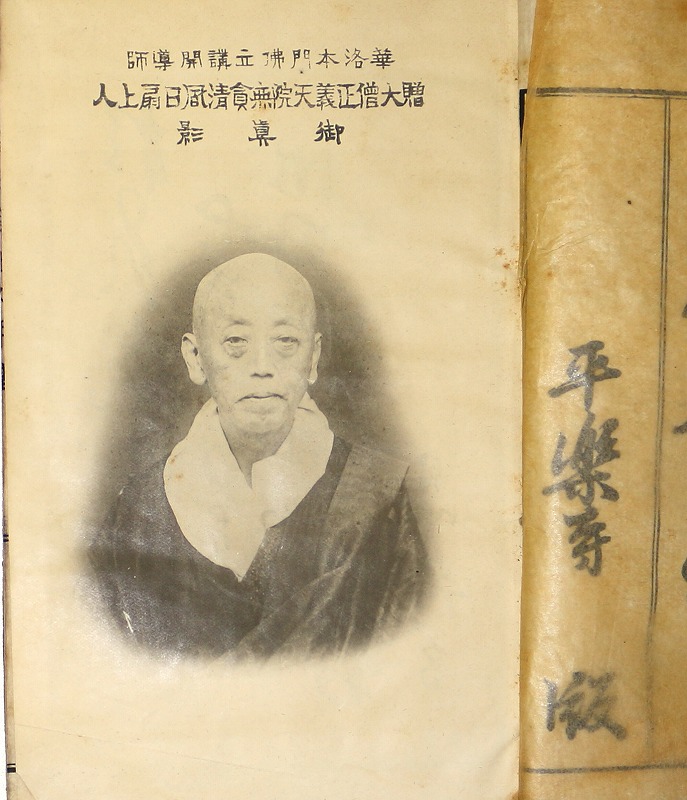 華洛本門佛立講開導師
贈大僧正義天院無貪清風日扇上人
御真影
平樂寺 殿